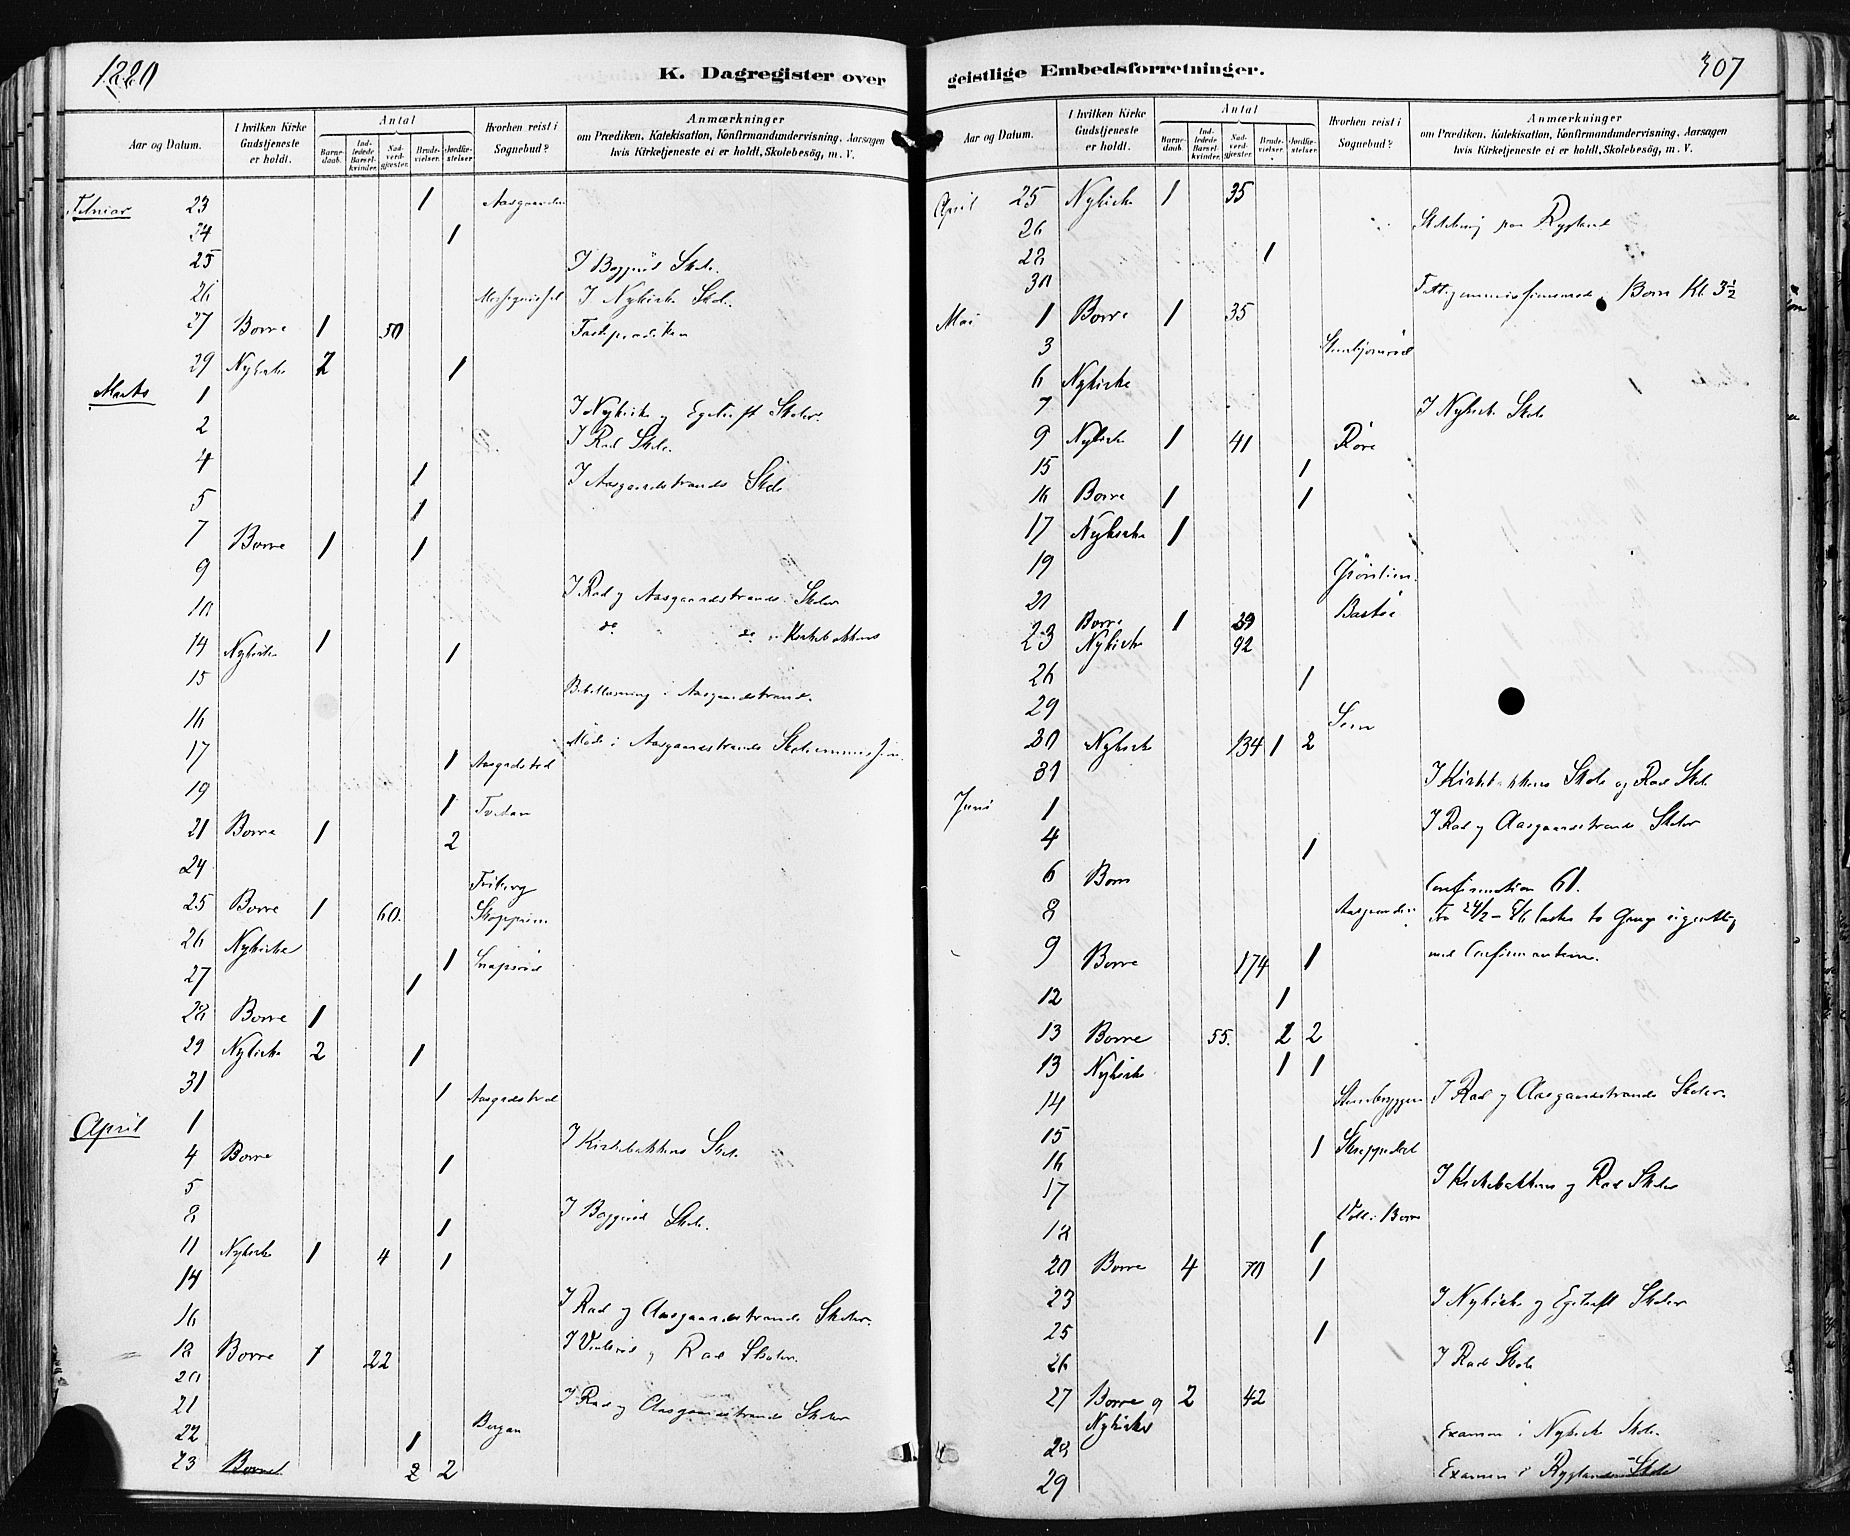 1880
K. Dagregister over
Aar og Datum.
I hvilken Kirke Gudstjeneste er holdt.
Antal
Barnedaab.
Indledede Barselkvinder.
Nadverdgjester.
Brudevielser.
Jordfæstelser
Hvorhen reist i Sognebud?
Anmærkninger
om Prædiken, Katekisation, Konfirmandundervisning, Aarsagen
hvis Kirketjeneste ei er holdt, Skolebesög, m. V.
Februar 23 1 Aasgaarden
24 1
25 I Baggeröd Skole.
26 I Nykirke Skole.
27 Borre 1 50 Fasteprædiken
29 Nykirke 2 1
Marts 1 I Nykirke og Skoler.
2 I Rad Skole.
4 1 I Aasgaardstrands Skole
5 1
7 Borre 1 1
9 I Rad og Aasgaardstrands Skoler
10 do do i Kirkebakkens
14 Nykirke 1 1
15 Bibellæsning i Aasgaardstrand.
16
17 Möde i Aasgaardstrands Skolecommission
1 Aasgadstrd
19 1 Tvedan
21 Borre 1 2
24
25 Borre 1 60. Skoppum
26 Nykirke
27 1 1
28 Borre 1
29 Nykirke 2 1
31 1 Aasgadstrd
April 1
4 Borre 1 I Kirkebakkens Skole
5
8 1 I Baggeröd Skole.
11 Nykirke 1 4 1
14
16 I Rad og Aasgaardstrands Skoler.
18 Borre 1 22 I og Rad Skoler.
20
21 I Rad og Aasgaardstrands Skoler
22 1 Bergan
23 Borre 2 2
geistlige Embedsforretninger.
307
Aar og Datum.
I hvilken Kirke Gudstjeneste er holdt.
Antal
Barnedaab.
Indledede Barselkvinder.
Nadverdgjester.
Brudevielser.
Jordfæstelser
Hvorhen reist i Sognebud?
Anmærkninger
om Prædiken, Katekisation, Konfirmandundervisning, Aarsagen
hvis Kirketjeneste ei er holdt, Skolebesög, m. V.
April 25 Nykirke 1 35
26 paa Rygland
28 1
30 Fattigcommissionsmöde i Borre Kl. 3½
Mai 1 Borre 1 35
3
6 Nykirke
7 I Nykirke Skole
9 Nykirke 1 41 Röre
15 1
16 Borre 1 1
17 Nykirke 1
19
21 Bastöe
23 Borre 1 39
23 Nykirke 92
26 1
29 Sem
30 Nykirke 134 1 2
31 I Kirkebakkens Skole og Rad Skole
Juni 1 I Rad og Aasgaardstrands Skoler
4 1
6 Borre Confirmation 61.
8 Aasgaarden
med Confirmanterne.
9 Borre 174 1
12 1
13 Borre 55. 2 2
13 Nykirke 1 1
14 Stenbryggen I Rad og Aasgaardstrands Skoler.
15 1
16
17 I Kirkebakkens og Rad Skoler
i Borre
18 1
20 Borre 4 70 1
23 I Nykirke og Skoler
25 1
26 I Rad Skole
27 Borre og Nykirke 2 42
28 Examen i Nykirke Skole.
29 Examen i Ryglands Skole